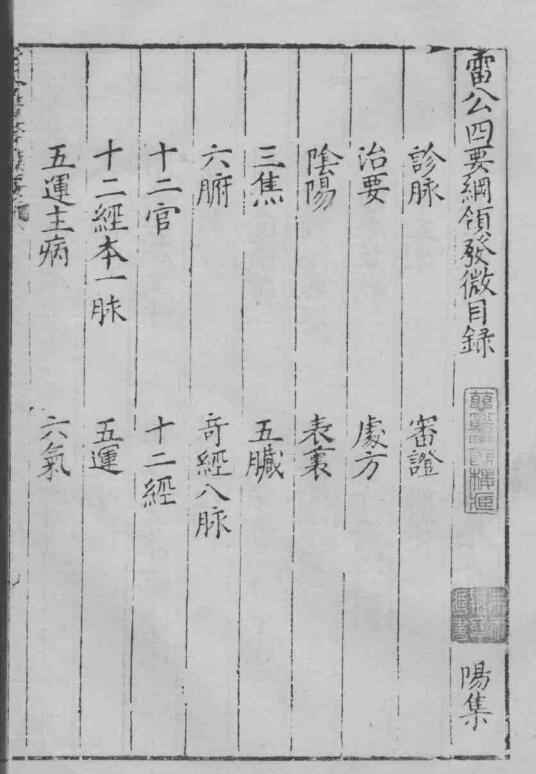 雷公四要綱領發微目録
陽集
診脉
審證
治要
處方
陰陽
表裏
三焦
五臟
六腑
奇經八脉
十二官
十二經
十二經本一脉
五運
五運主病
六氣